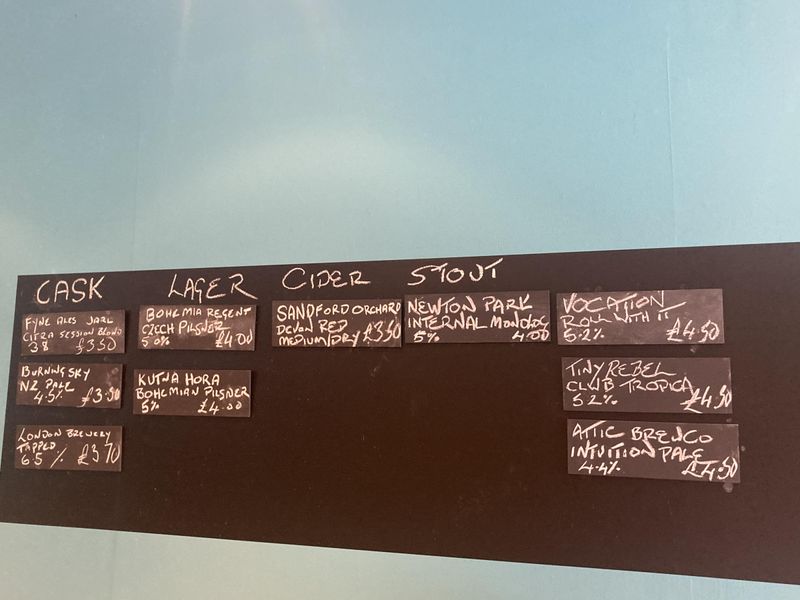 CASK
FYNE ALES JARL
CITRA SESSION BLOND
3.8 £3.50
BURNING SKY
NZ PALE
4.5% £3.50
LONDON BREWERY
TAPPED
6.5% £3.70
LAGER
BOHEMIA REGENT
CZECH PILSNER
5.0% £4.00
KUTNA HORA
BOHEMIAN PILSNER
5% £4.00
CIDER
SANDFORD ORCHARD
DEVON RED
MEDIUM/DRY £3.50
STOUT
NEWTON PARK
INTERNAL MONOLOG
5% 4.00
VOCATION
ROLL WITH IT
5.2% £4.50
TINY REBEL
CLWB TROPICA
5.2% £4.50
ATTIC BREWCO
INTUITION PALE
4.4% £4.50